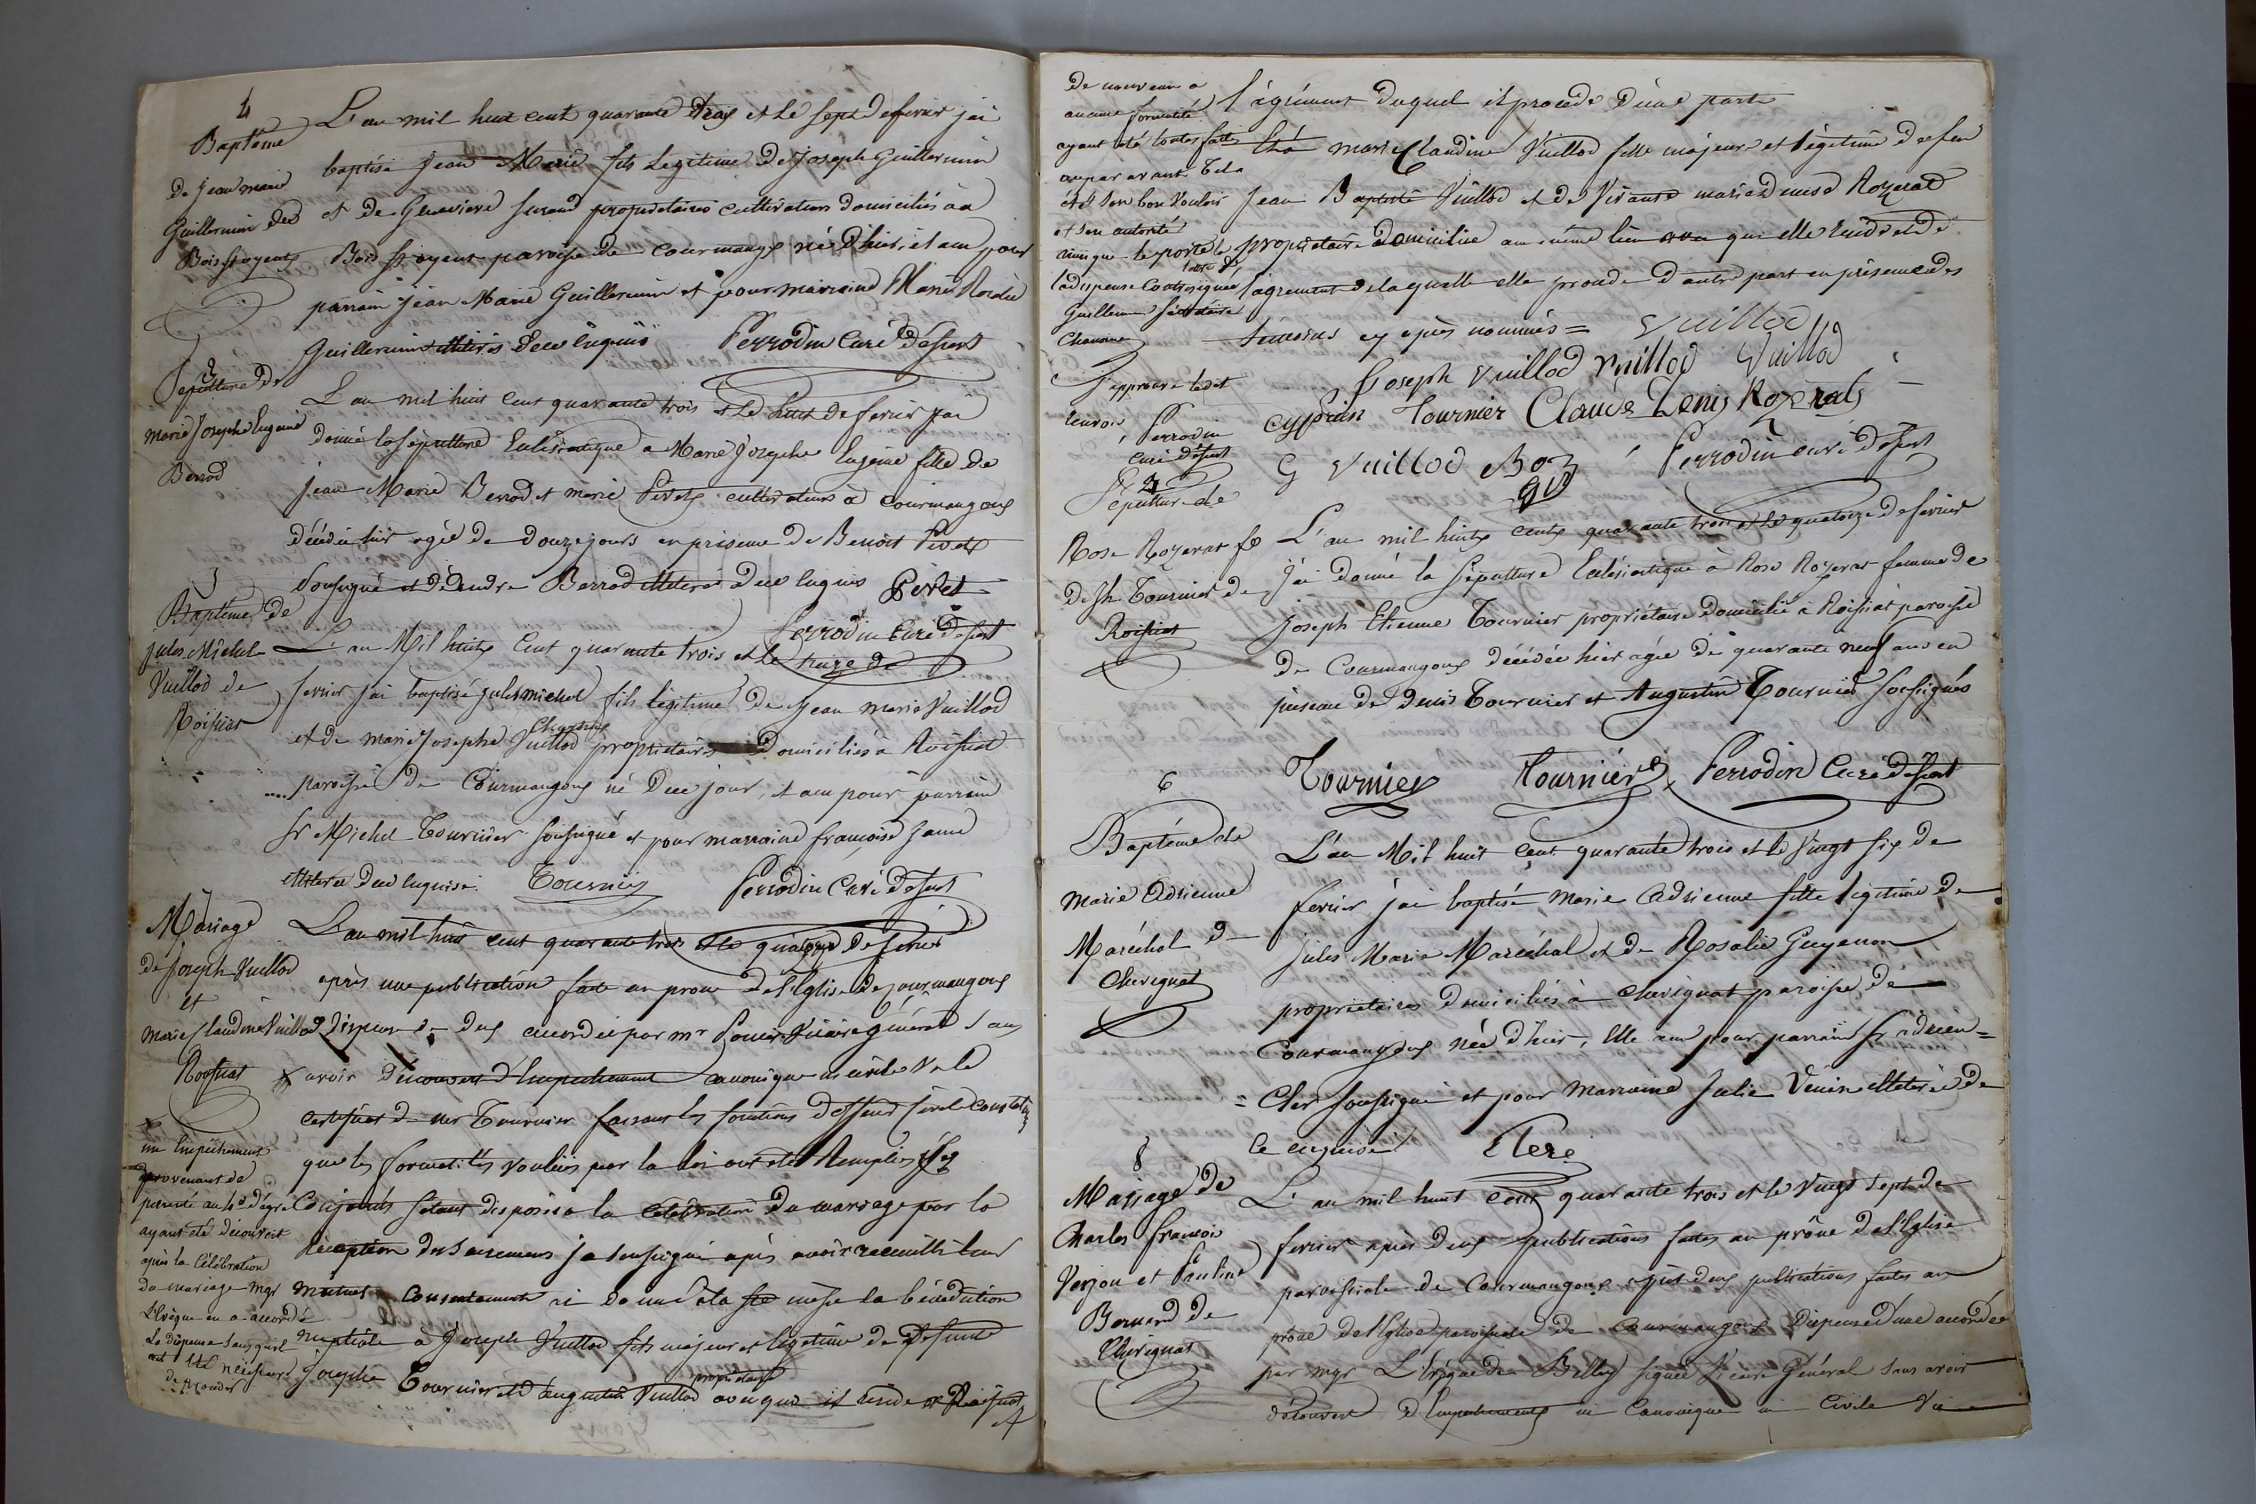 4
Baptême
de Jean marie
Guillermin des
Bois froyent
L'an mil huit cent quarante trois et le sept de fevrier j'ai
baptisé Jean Marie fils legitime de Joseph Guillermin
et de Genevieve propriétaires cultivateurs domiciliés au
Bois froyent paroisse de Courmangoux né d'hier, il a eu pour
parrain Jean Marie Guillermin et pour marraine Marie Rosalie
Guillermin illiterés de ce enquis Perrodin Curé desserv
3
Sepulture de
marie Josephe Eugenie
Berrod
L'an mil huit cent quarante trois et le huit de fevrier j'ai
donné la sépulture Eclésiastique à Marie Josephe Eugénie fille de
Jean Marie Berrod et marie Pivet cultivateurs à Courmangoux
décédée hier agée de douze jours en présence de Benoit Pivet
soussigné et d'André Berrod illiteré de ce enquis Pivet
Perrodin Curé desserv
5
Baptême de
Jules Michel
Vuillod de
Roissiat
L'an Mil huit Cent quarante trois et le treize de
fevrier j'ai baptisé jules michel fils légitime de Jean Marie Vuillod
et de marie Josephe Vuillod propriétaires domiciliés à Roissiat
paroisse de Courmangoux né de ce jour, il a eu pour parrain
Sr Michel Tournier soussigné et pour marraine françoise
illiterée de ce enquise. Tournier Perrodin Curé desserv
Mariage
de Joseph Vuillod
et
Marie Claudine Vuillod
Roissiat
L'an mil huit cent quarante trois et le quatorze de fevrier
après une publication faite au prone de l'Eglise de Courmangoux
Dispense de deux accordée par mr Vicaire général sans
avoir découvert d'Empechement canonique ni civile Vu le
certificat de mr Tournier faisant les fonctions d'officier civile constatant
que les formalités voulues par la loi ont été Remplies les
Conjoints s'étant disposés à la célébration du mariage par la
réception des sacremens je soussigné après avoir recueilli leur
mutuel consentement ai donné à la ste messe la bénédiction
nuptiale à Joseph Vuillod fils majeur et légitime de defunte
Josephe Tournier et d'augustin Vuillod propriétaire avec qui il réside à Roissiat
un Empêchement
provenant de
parenté au 4e dégré
ayant été découvert
après la Célébration
du mariage mgr
L'Evêque en a accordé
la dispense sans qu'il
ait été nécessaire
de
de nouveau à
aucune formalité
ayant été toutes faites
auparavant. Tel a
été son bon vouloir
et son autorité
ainsi que le porte la
ladispense Contresignée
Guillemin secrétaire
Chanoine
J'approuve ledit
renvoi Perrodin
curé desserv
l'agrément duquel il procède d'une part
Et marie Claudine Vuillod fille majeure et légitime de feu
Jean Baptiste Vuillod et de Vivante marie denise Rozerat
propriétaire domiciliée au même lieu avec qui elle réside et de
l'agrement de laquelle elle procede d'autre part en présence des
témoins cy après nommés = Vuillod
Joseph Vuillod Vuillod Vuillod
Cyprien Tournier Claude Denis Rozerat
G Vuillod Boz Perrodin curé desserv
Sépulture de
Rose Rozerat fe
de Jh Tournier de
Roissiat
L'an mil huit cent quarante trois et le quatorze de fevrier
j'ai donné la Sépulture Eclésiastique à Rose Rozerat femme de
Joseph Etienne Tournier propriétaire domicilié à Roissiat paroisse
de Courmangoux décédée hier agée de quarante neuf ans en
présence de denis Tournier et Augustin Tournier soussignés
Tournier Tournier Perrodin Curé desserv
6
Baptême de
Marie Adrienne
Maréchal de
Chevignat
L'an Mil huit cent quarante trois et le vingt six de
fevrier j'ai baptisé Marie Adrienne fille légitime de
Jules Marie Maréchal et de Rosalie Guyenon
propriétaires domiciliés à Chevignat paroisse de
Courmangoux née d'hier, Elle a eu pour parrain Sr adrien =
= Clerc soussigné et pour Marraine Julie illiterée de
ce enquise Clerc
8
Mariage de
Charles françois
Verjou et Pauline
Bernard de
Chevignat
L'an mil huit cent quarante trois et le vingt sept de
fevrier après deux publications faites au prône de l'Eglise
paroissiale de Courmangoux après deux publications faites au
prône de l'Eglise paroissiale de Courmangoux Dispense d'une accordée
par mgr L'Evêque de Belley signée Vicaire Général sans avoir
découvert d'Empechements ni Canonique ni Civile Vu